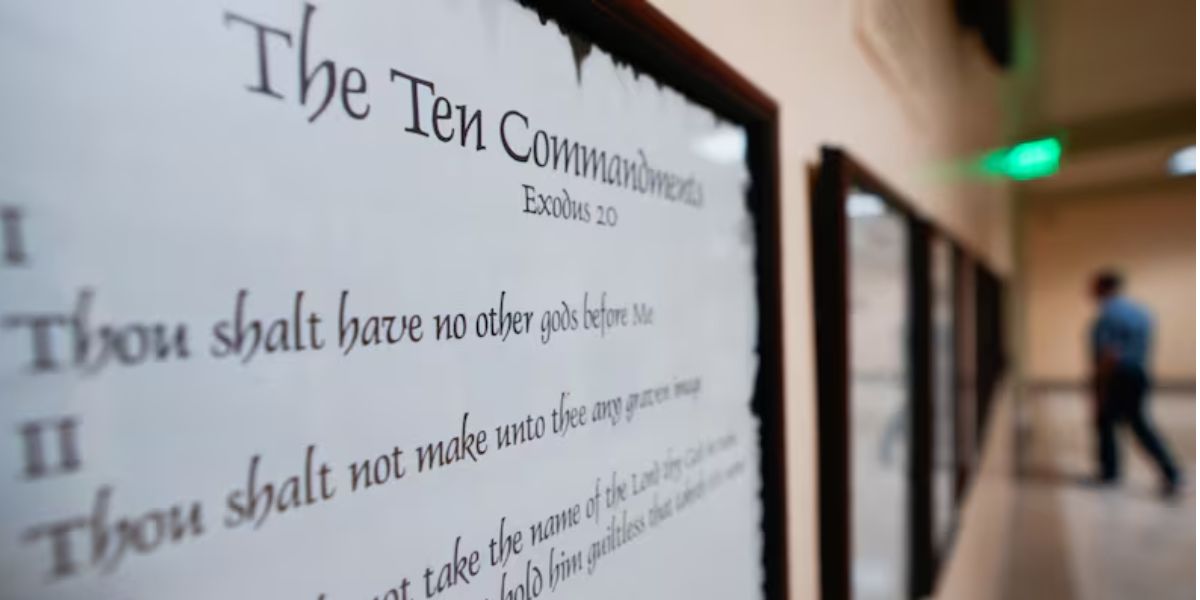 The Ten Commandments
Exodus 20
I
Thou shalt have no other gods before Me
II
Thou shalt not make unto thee any graven image
not take the name of the Lord thy God in vain
hold him guiltless that taketh his name